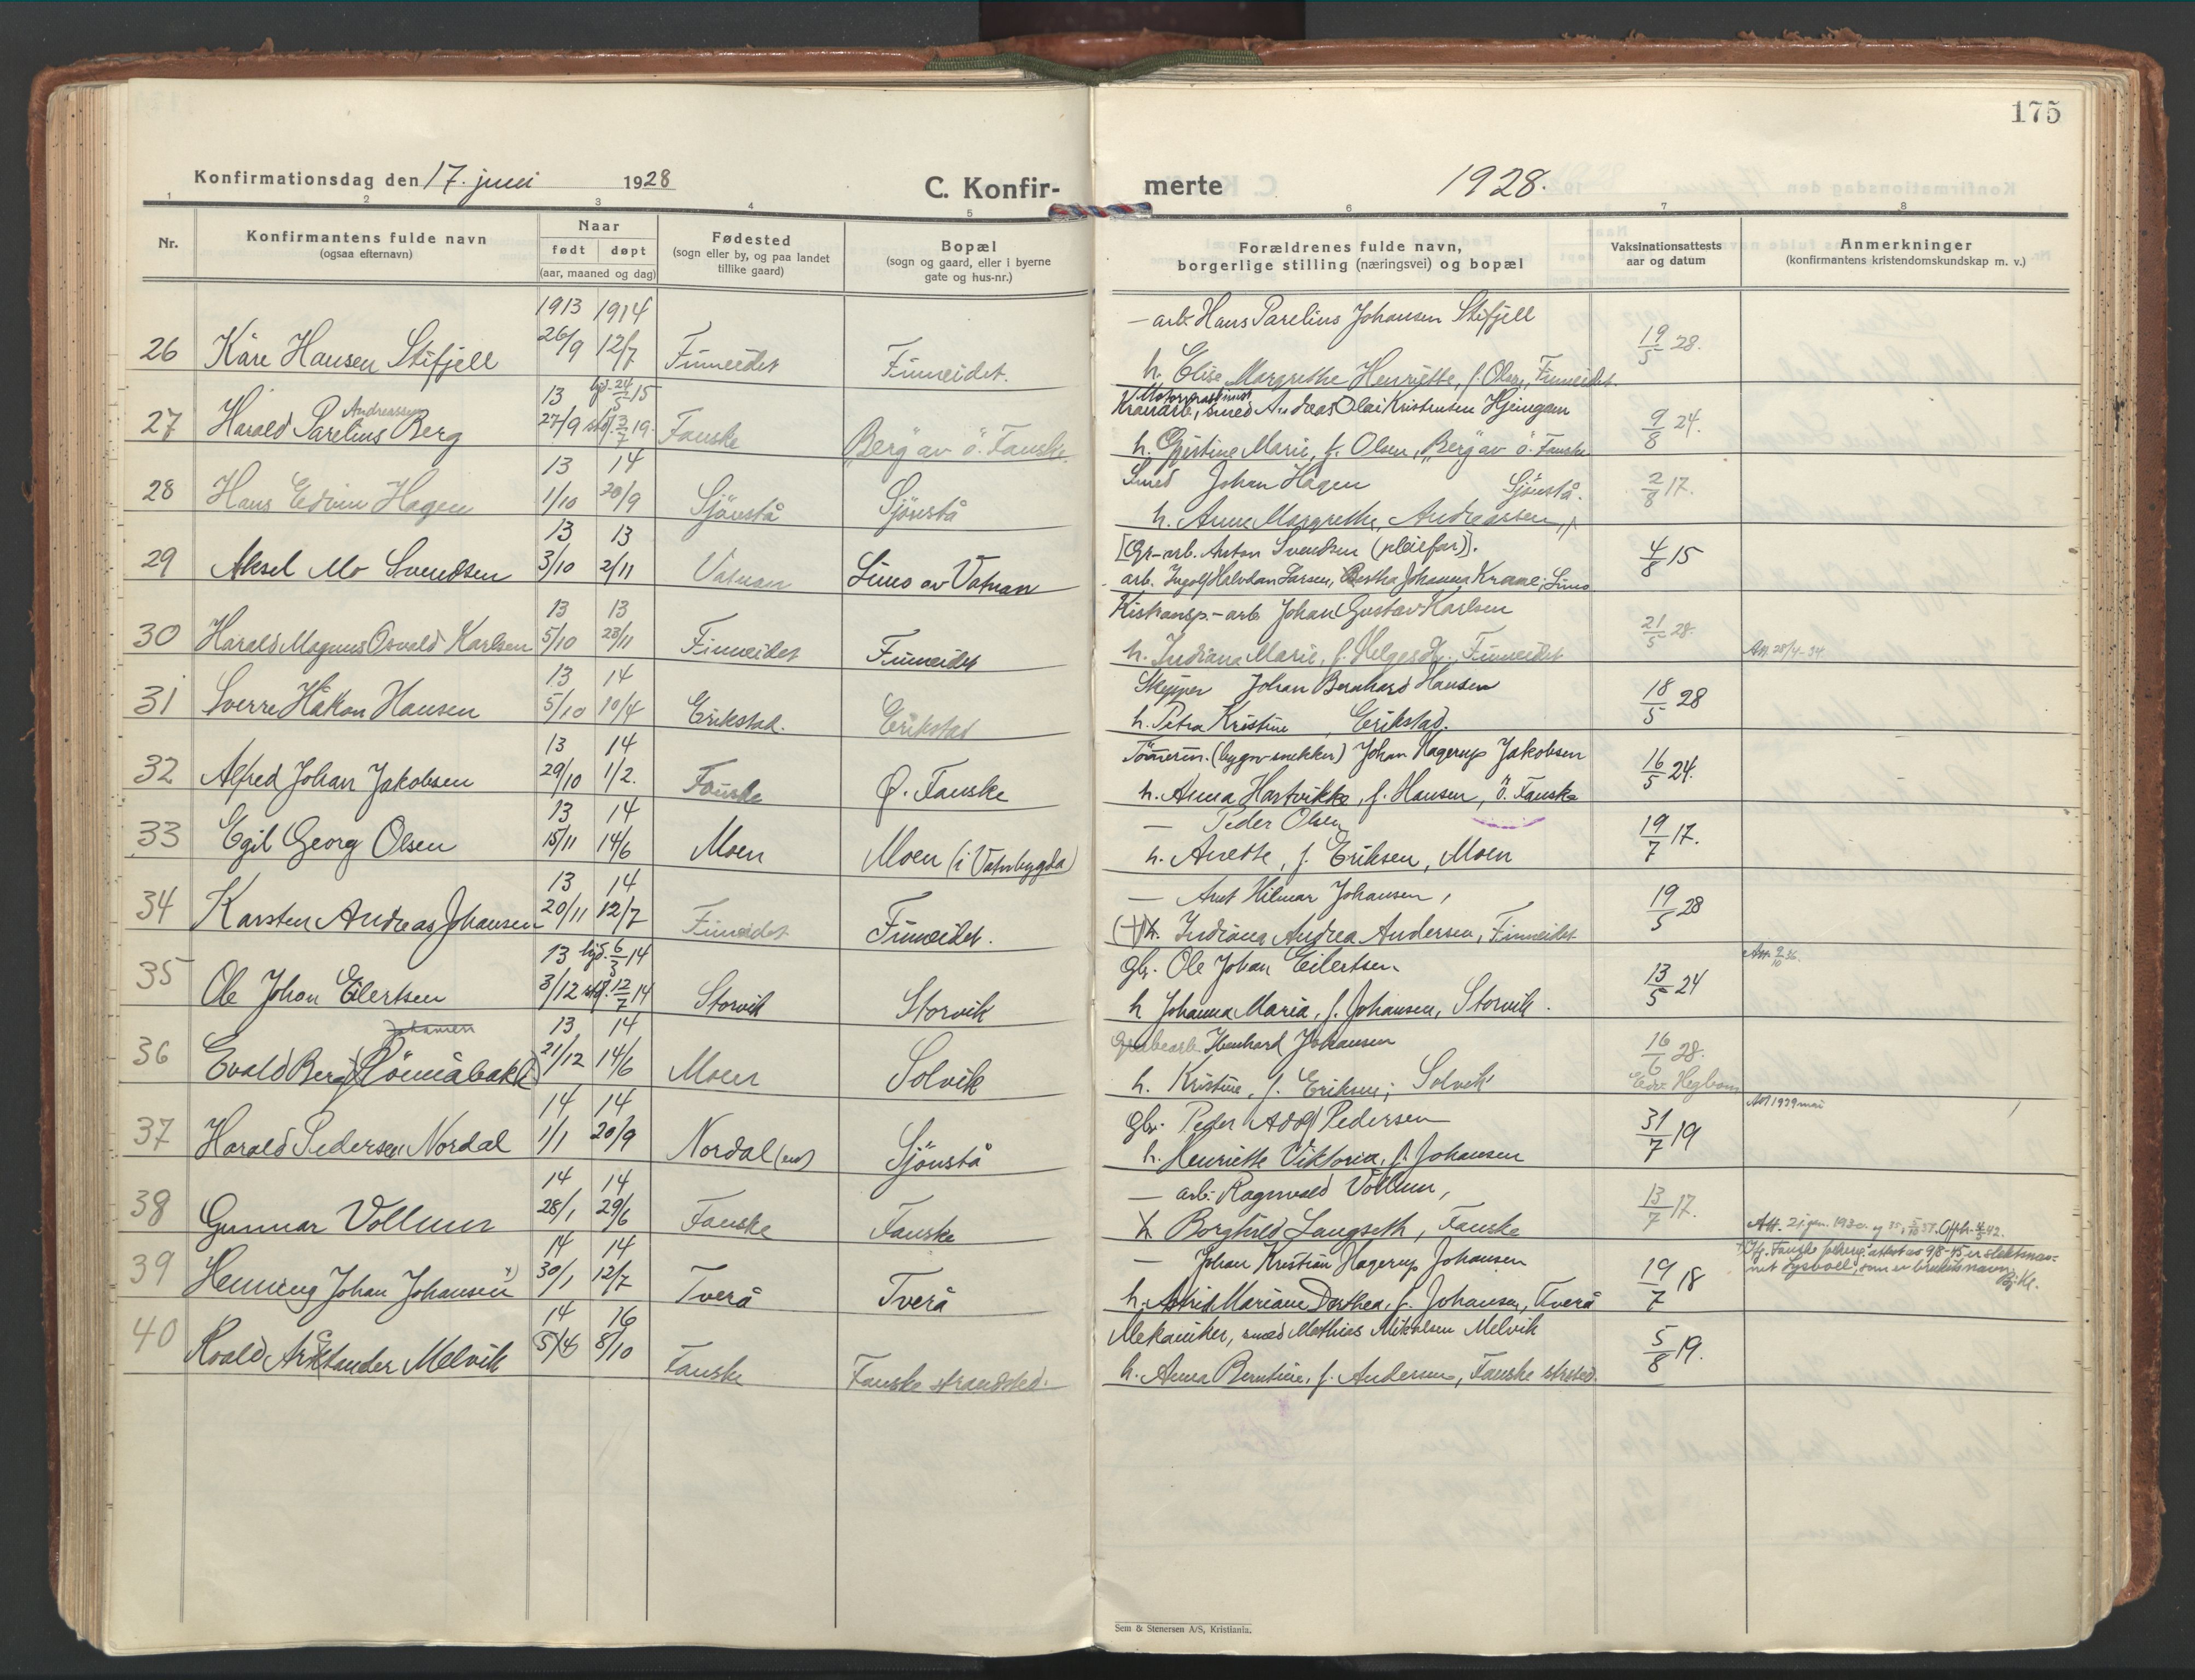 175
Konfirmationsdag den 17. juni 1928
C. Konfir-
merte
1928.
1 2 3 4 5 6 7 8
Nr.
Konfirmantens fulde navn
(ogsaa efternavn)
Naar
født døpt
(aar, maaned og dag)
Fødested
(sogn eller by, og paa landet
tillike gaard)
Bopæl
(sogn og gaard, eller i byerne
gate og hus-nr.)
Forældrenes fulde navn,
borgerlige stilling (næringsvei) og bopæl
Vaksinationsattests
aar og datum
Anmerkninger
(konfirmantens kristendomskundskap m. v.)
1913 1914 — arb. Hans Parelius Johansen Stifjell
26 Kåre Hansen Stifjell 26/9 12/7 Finneidet Finneidet. 19/5 28.
h. Elise Margrethe Henriette, f. Olsen, Finneidet.
13 hjd. 24/5 15
Andreassen Kranarb., smed Andreas Olai Kristensen Hjemgam
27 Harald Parelius Berg 27/9 stdf. 3/7 19. Fauske "Berg" av ö. Fauske 9/8 24.
h. Kristine Marie, f. Olsen, "Berg" av ö. Fauske
13 14 Smed Johan Hagen Sjönstå.
28 Hans Edvin Hagen 1/10 20/9 Sjönstå Sjönstå 2/8 17.
h. Anne Margrethe Andreassen
13 13 [Gr-arb. Anton Svendsen (pleiefar)].
29 Aksel Mo Svendsen 3/10 2/11 Vatnan Limo av Vatnan 4/8 15
arb. Ingolf Halvdan Larsen, Bertha Johanna Kraael; Limo
13 13 Kistransp.-arb. Johan Gustav Karlsen
30 Harald Magnus Osvald Karlsen 5/10 23/11 Finneidet Finneidet 21/5 28.
h. Indiana Marie, f. Helgesdtr., Finneidet Att. 28/4-34.
13 14 Skipper Johan Bernhard Hansen
31 Sverre Håkon Hansen 5/10 10/4 Erikstad. Erikstad 18/5 28
h. Petra Kristine, Erikstad.
13 14 Tömerm. (bygn-snekker) Johan Hagerup Jakobsen
32 Alfred Johan Jakobsen 29/10 1/2. Fauske Ø. Fauske 16/5 24.
h. Anna Hartvikke, f. Hansen, ö. Fauske
13 14 — Peder Olsen
33 Egil Georg Olsen 15/11 14/6 Moen Moen (i Vatnbygda) 19/7 17.
h. Anette, f. Eriksen, Moen
13 14 — Arnt Hilmar Johansen,
34 Karsten Andreas Johansen 20/11 12/7 Finneidet Finneidet. 19/5 28
(†) h. Indiana Andrea Andersen, Finneidet
13 hjd. 6/3 14 gbr. Ole Johan Eilertsen. Att. 2/10 36.
35 Ole Johan Eilertsen 3/12 stdf. 12/7 14 Storvik Storvik 13/5 24
h. Johanna Maria, f. Johansen, Storvik.
Johansen 13 14 Grubearb. Ibenhard Johansen
36 Evald Berg (Rönnåbakk) 21/12 14/6 Moen Solvik 16/6 28.
h. Kristine, f. Eriksen; Solvik Edv. Hegbom
14 14 gbr. Peder Adolf Pedersen Att 1939 mai
37 Harald Pedersen Nordal 1/1 20/9 Nordal Sjönstå 31/7 19
h. Henriette Viktoria, f. Johansen
14 14 — arb. Ragnvald Vollum,
38 Gunnar Vollum 28/1 29/6 Fauske Fauske 13/7 17.
h. Borghild Langseth, Fauske
14 14 — Johan Kristian Hagerup Johansen
39 Henning Johan Johansen x) 30/1 12/7 Tverå Tverå 19/7 18
h. Astrid Mariane Dorthea, f. Johansen, Tverå
14 16 Mekaniker, smed Mathias Mikalsen Melvik
40 Roald Arktander Melvik 5/4 8/10 Fauske Fauske strandsted. 5/8 19.
h. Anna Berntine, f. Andersen, Fauske strsted.
Sem & Stenersen A/S, Kristiania.